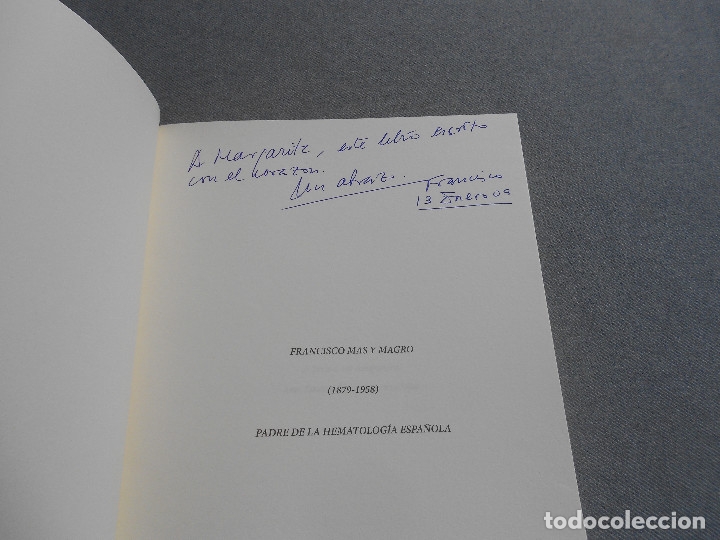 A Margarita, este libro escrito
con el corazon.
Un abrazo..
Francisco
13 Enero 09
FRANCISCO MAS Y MAGRO
(1879-1958)
PADRE DE LA HEMATOLOGÍA ESPAÑOLA
todocoleccion